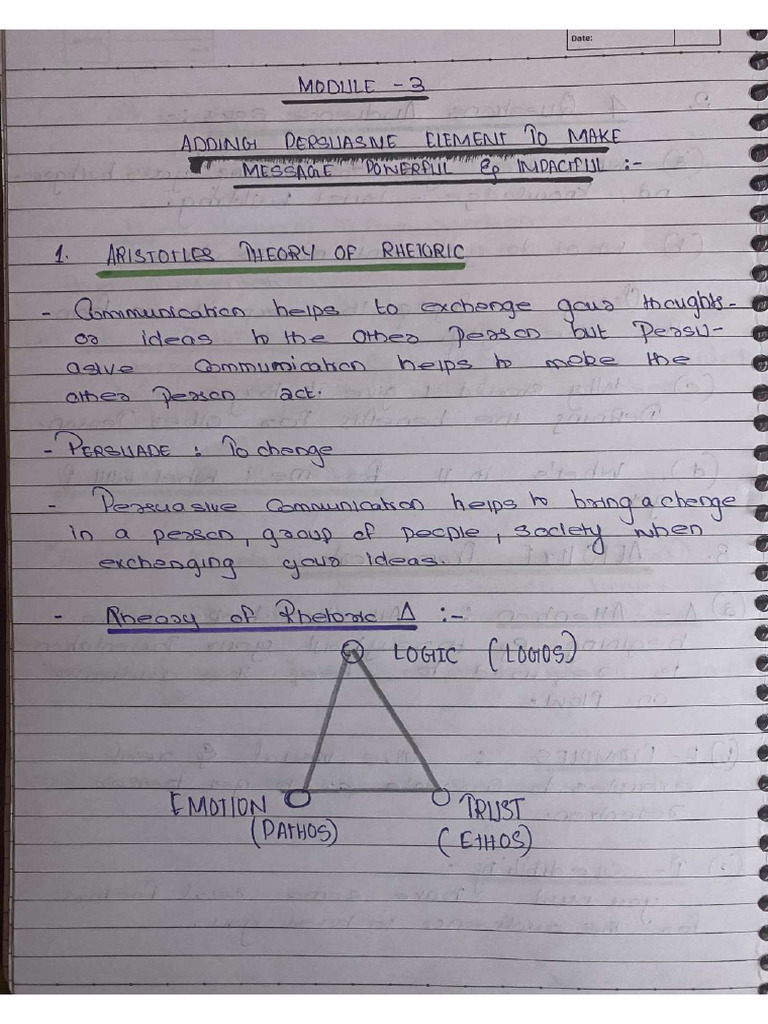 Date:
MODULE - 3
ADDING PERSUASIVE ELEMENT TO MAKE
MESSAGE POWERFUL & IMPACTFUL :-
1. ARISTOTLES THEORY OF RHETORIC
- Communication helps to exchange your thoughts
or ideas to the other person but Persu-
asive Communication helps to make the
other person act.
- PERSUADE : To change
- Persuasive Communication helps to bring a change
in a person, group of people, society when
exchanging your ideas.
- Rheory of Rhetoric Δ :-
LOGIC (LOGOS)
EMOTION
(PATHOS)
TRUST
(ETHOS)